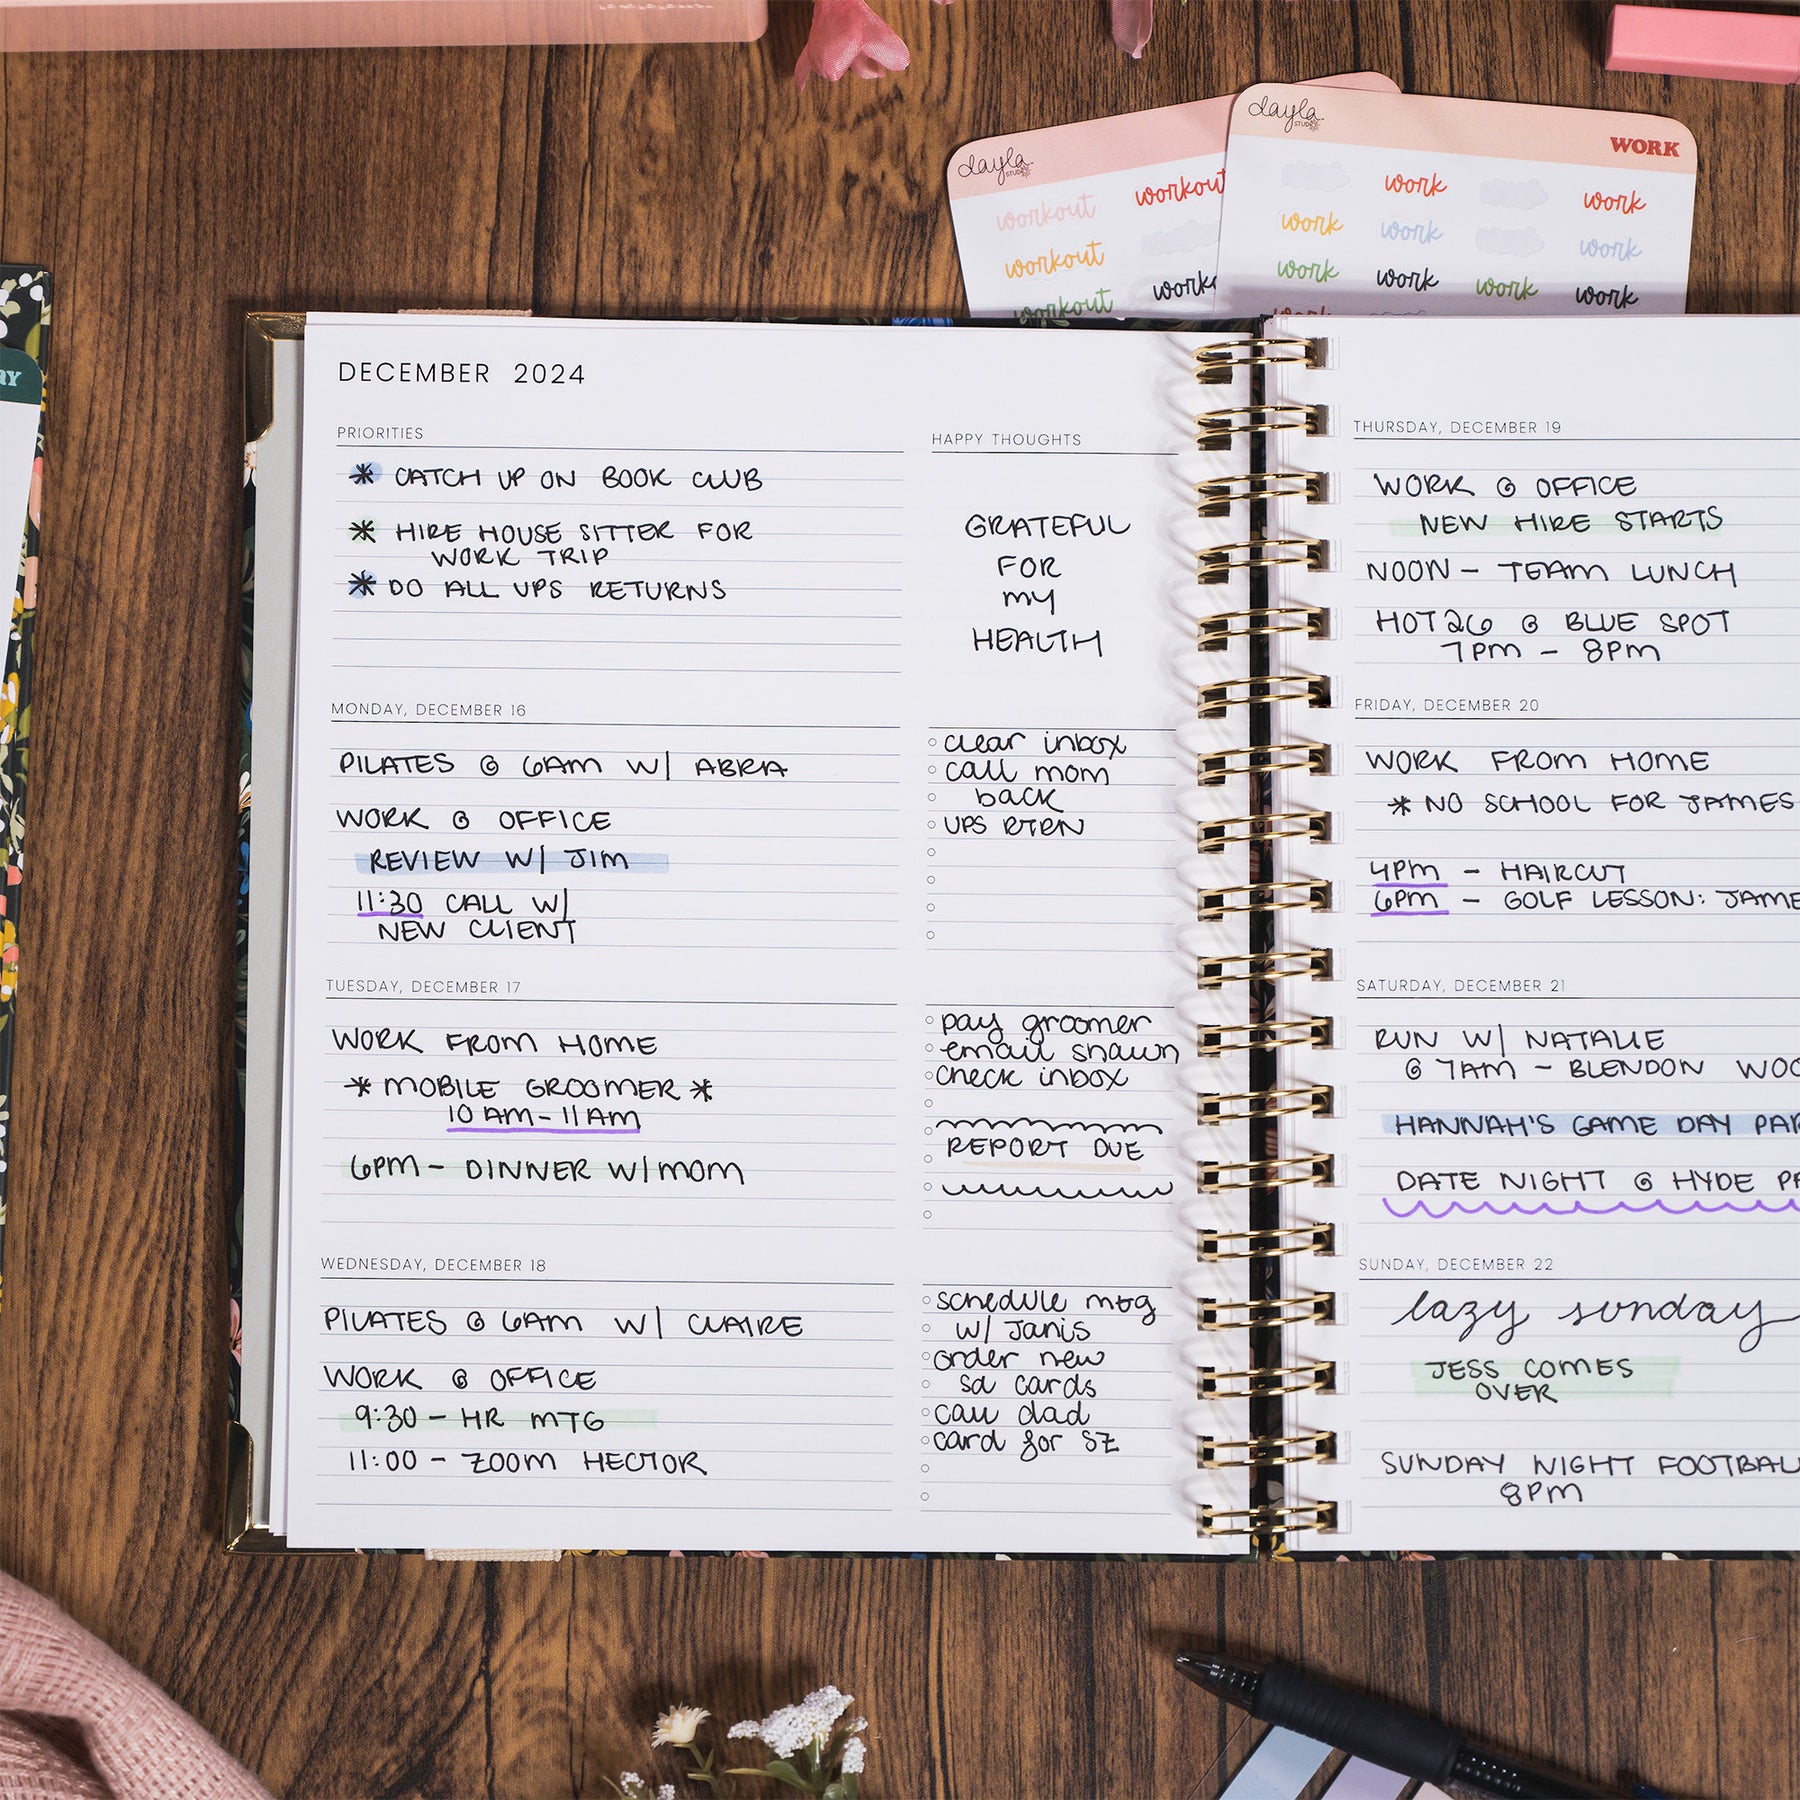 RY
dayla
STUDIO
workout
workout
workout
workout
workout
dayla
STUDIO
WORK
work
work
work
work
work
work
work
work
work
work
DECEMBER 2024
PRIORITIES
* CATCH UP ON BOOK CLUB
* HIRE HOUSE SITTER FOR
WORK TRIP
* DO ALL UPS RETURNS
HAPPY THOUGHTS
GRATEFUL
FOR
MY
HEALTH
MONDAY, DECEMBER 16
PILATES @ 6AM W/ ABRA
WORK @ OFFICE
REVIEW W/ JIM
11:30 CALL W/
NEW CLIENT
clear inbox
call mom
back
UPS RTRN
TUESDAY, DECEMBER 17
WORK FROM HOME
* MOBILE GROOMER *
10 AM - 11 AM
6PM - DINNER W/ MOM
pay groomer
email shawn
check inbox
REPORT DUE
WEDNESDAY, DECEMBER 18
PILATES @ 6AM W/ CLAIRE
WORK @ OFFICE
9:30 - HR MTG
11:00 - ZOOM HECTOR
schedule mtg
w/ Janis
order new
sd cards
call dad
card for SZ
THURSDAY, DECEMBER 19
WORK @ OFFICE
NEW HIRE STARTS
NOON - TEAM LUNCH
HOT26 @ BLUE SPOT
7PM - 8PM
FRIDAY, DECEMBER 20
WORK FROM HOME
* NO SCHOOL FOR JAMES
4PM - HAIRCUT
6PM - GOLF LESSON: JAME
SATURDAY, DECEMBER 21
RUN W/ NATALIE
@ 7AM - BLENDON WOO
HANNAH'S GAME DAY PAR
DATE NIGHT @ HYDE PA
SUNDAY, DECEMBER 22
lazy sunday
JESS COMES
OVER
SUNDAY NIGHT FOOTBAL
8PM